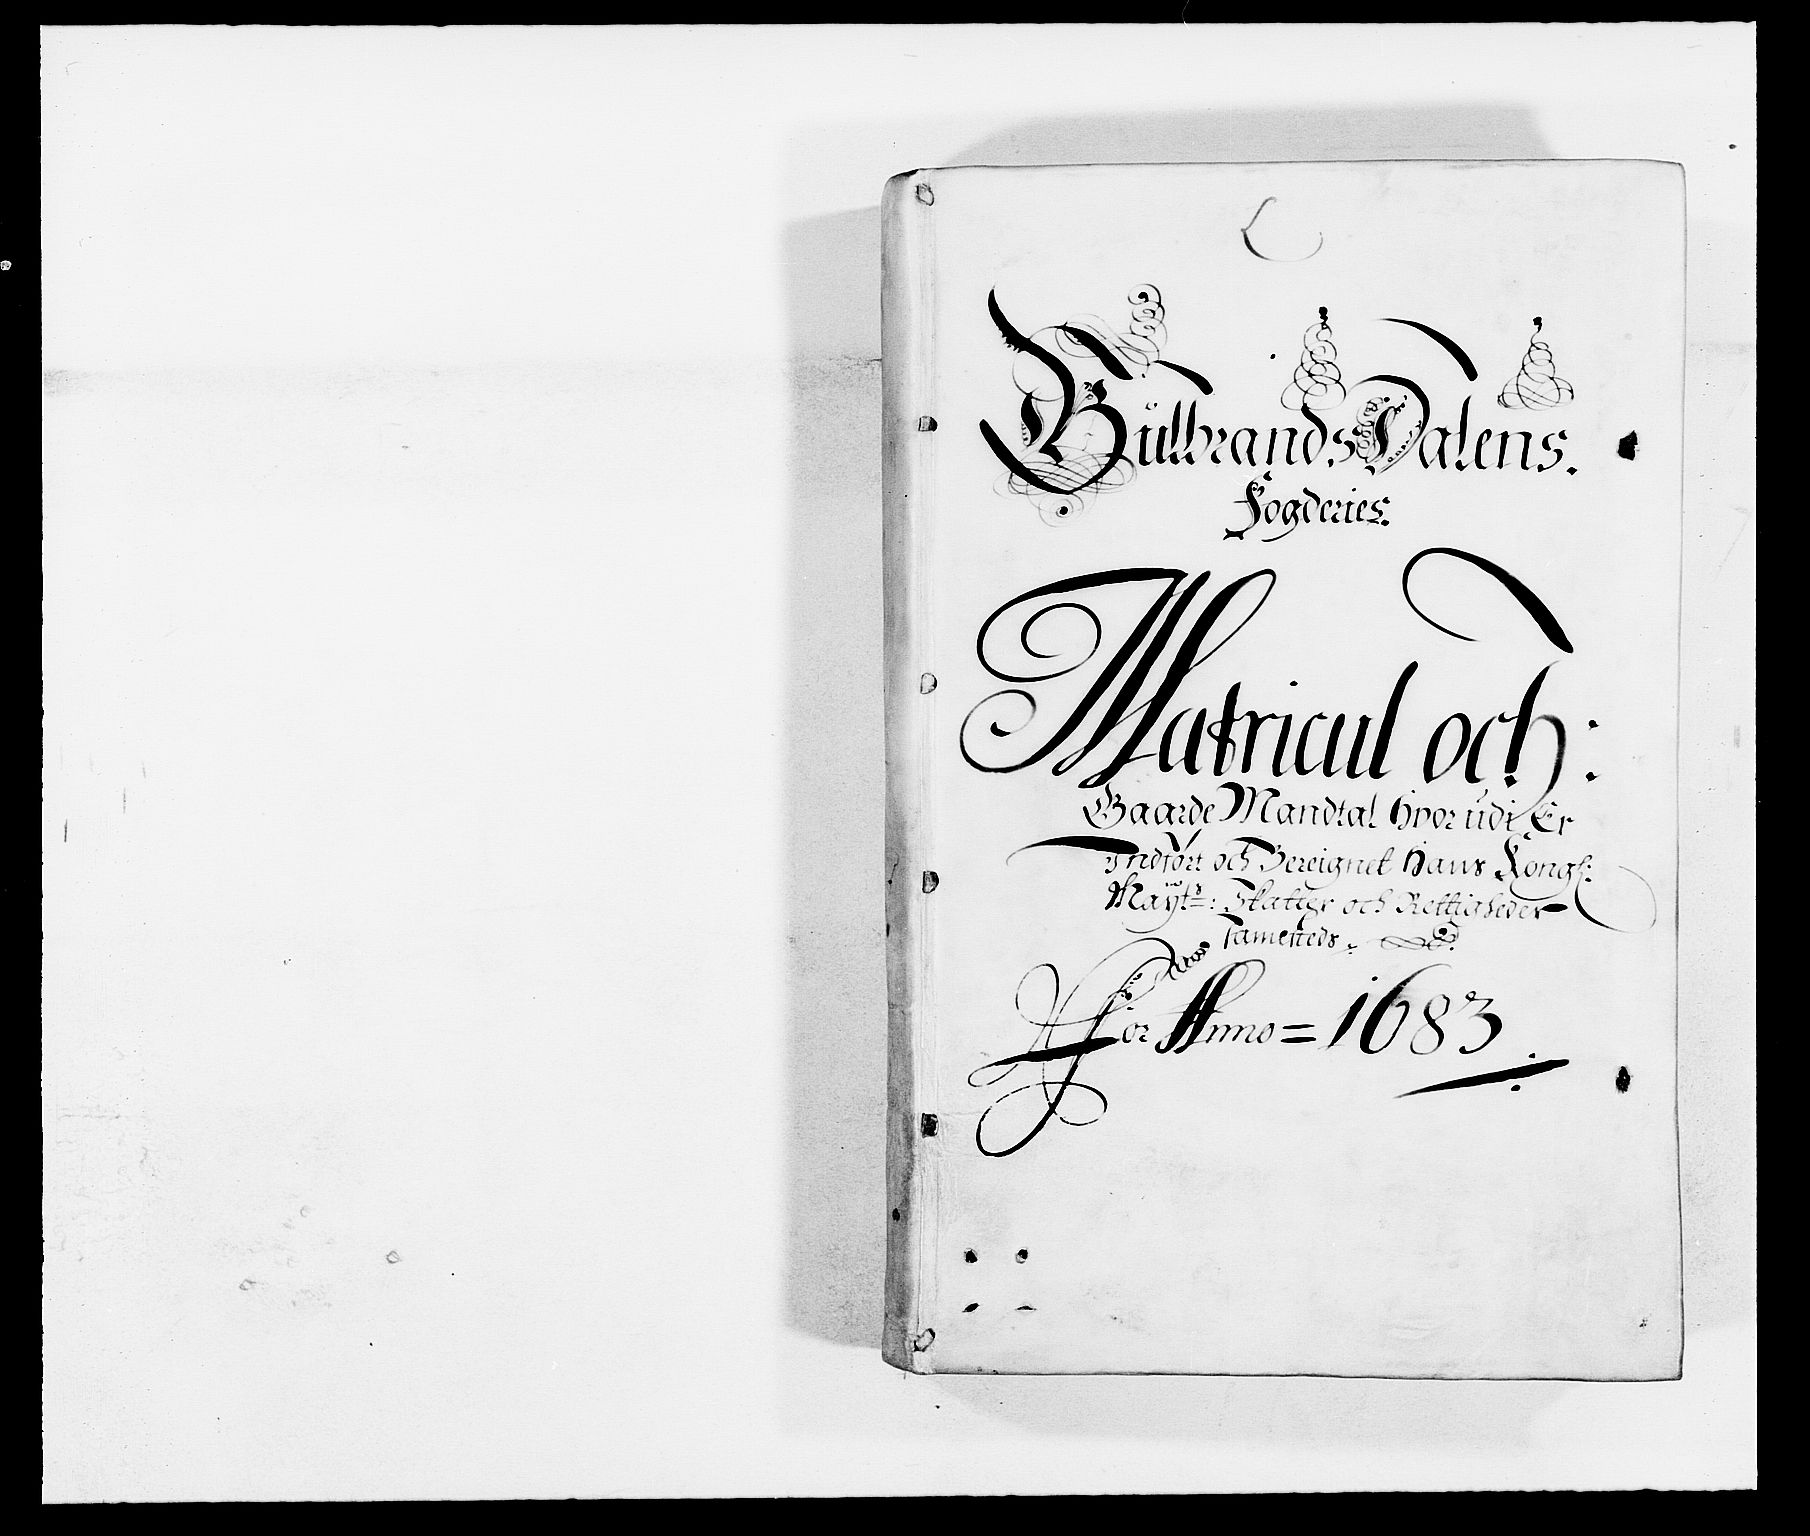 L
GülbrandsDalens.
Fogderies.
Matricul och:
Gaarde Mandtal hvor üdi Er
Indført och Bereignet Hans Kongl:
Maÿts: Skatter och Rettigheder
samesteds.
For Anno = 1683.